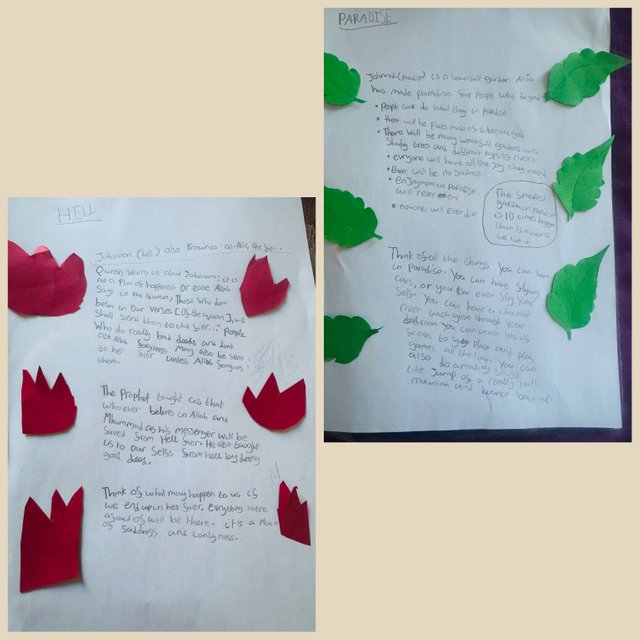 HELL
Jahannam (hell) also known as an-Nar, the fier.
Quran warns us about Jahannam: it is
not a place of happiness or ease Allah
says in the quran; Those who dont
beleive in our verses [of the quran],
shall send them to the fier..." People
who do really bad deeds and dont
ask Allah forgivness may also be sent
to hell fier unless Allah forgives
them.
The Prophet taught us that
who ever belives in Allah and
as his messenger will be
saved from Hell fier. He also taught
us to our selfs from hell by doing
good deeds.
Think of what may happen to us if
we end up in hell fier. evrything were
afraid of will be there. it is a place
of saddness and lonlyness.
PARADISE
Jahnnah (paradise) is a beautifull garden Allah
has made paradise for people who do good
• people can do what they in paradise
• there will be places made of silver and gold
• There will be many beautifull gardens with
shady trees and diffrent types of rivers
• evryone will have all the joy they need
• there will be no
• enjoyment in paradise
will never
• no-one will ever die
The smallest
garden in paradise
is 10 times bigger
than the world
we live in
Think of all the things you can have
in paradise. You can have flying
cars, or you can even fly your
self. You can have a chocolat
river wich goes through your
bedroom you can invite lots of
friends to your place and play
games all the time. You can
also do amazing stuff
like jump of a really tall
mountain and bounce back up.